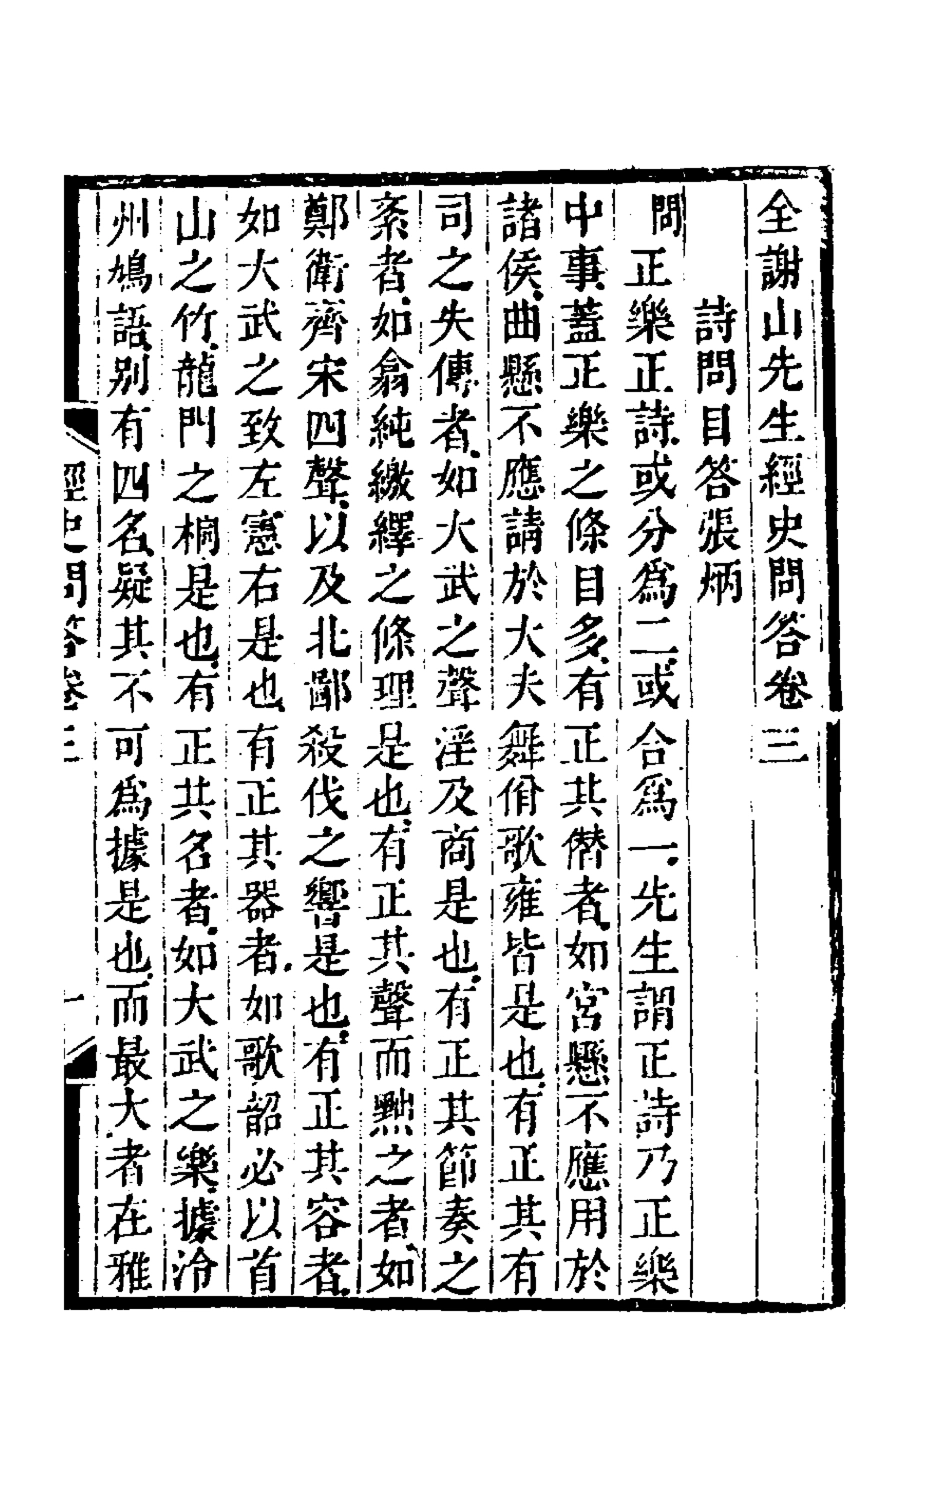 全謝山先生經史問答卷三
詩問目答張炳
問正樂正詩或分爲二或合爲一先生謂正詩乃正樂
中事蓋正樂之條目多有正其僭者如宮懸不應用於
諸侯曲懸不應請於大夫舞佾歌雍皆是也有正其有
司之失傳者如大武之聲淫及商是也有正其節奏之
紊者如翕純繳繹之條理是也有正其聲而黜之者如
鄭衛齊宋四聲以及北鄙殺伐之響是也有正其容者
如大武之致左憲右是也有正其器者如歌韶必以首
山之竹龍門之桐是也有正其名者如大武之樂據泠
州鳩語别有四名疑其不可爲據是也而最大者在雅
經史問答卷三 一